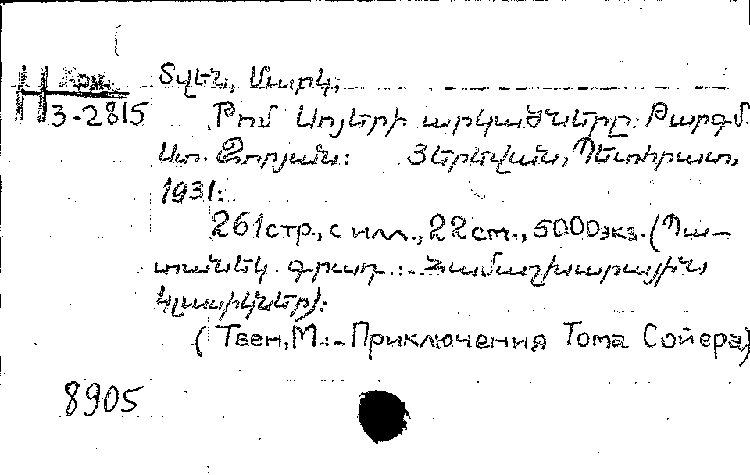 Арм.
3-2815
Տվեն, Մարկ,
Թոմ Սոյերի արկածները: Թարգմ.
Ստ. Զորյան: Յերեվան, Պետհրատ,
1931:
261стр., с илл., 22см., 5000экз. (Պա-
տանեկ. գրադ.:- Համաշխարային
կլասիկներ):
(Твен, М.:- Приключения Тома Сойера)
8905